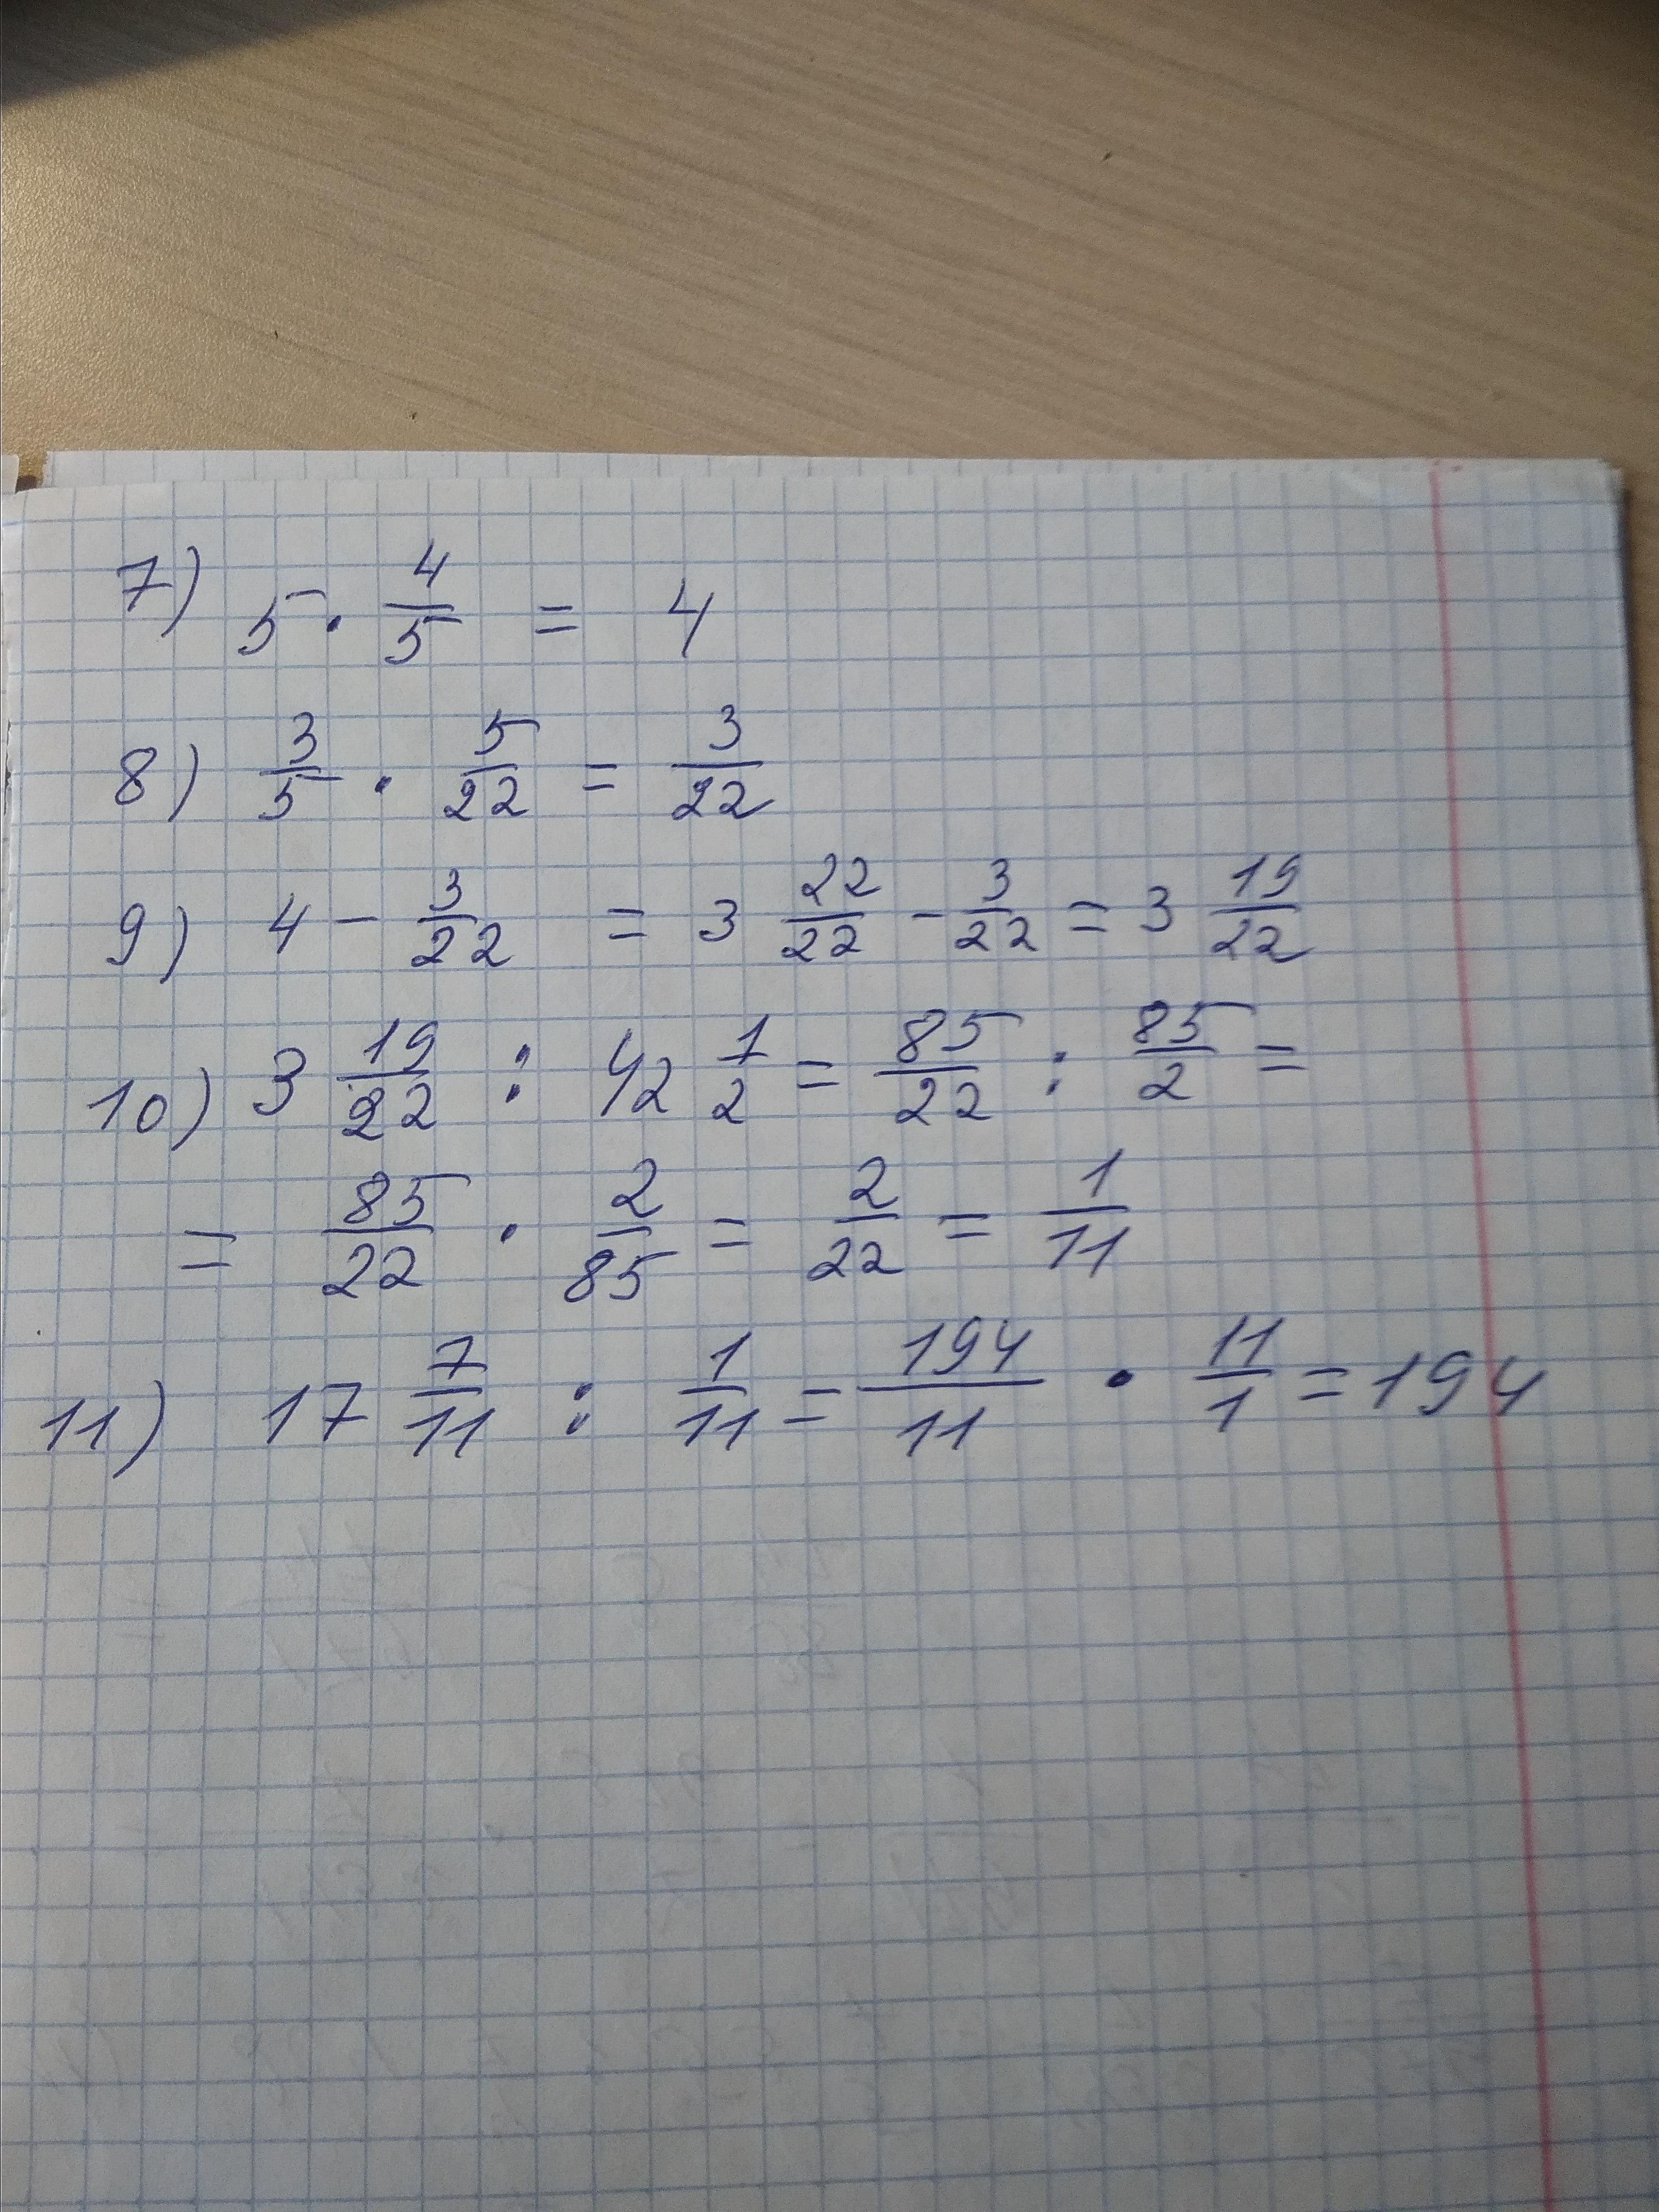 7) 5 · 4/5 = 4
8) 3/5 · 5/22 = 3/22
9) 4 - 3/22 = 3 22/22 - 3/22 = 3 19/22
10) 3 19/22 : 42 1/2 = 85/22 : 85/2 =
= 85/22 · 2/85 = 2/22 = 1/11
11) 17 7/11 : 1/11 = 194/11 · 11/1 = 194